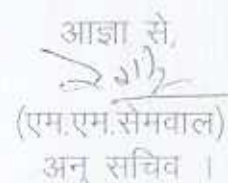 आज्ञा से,
(एम.एम.सेमवाल)
अनु सचिव ।